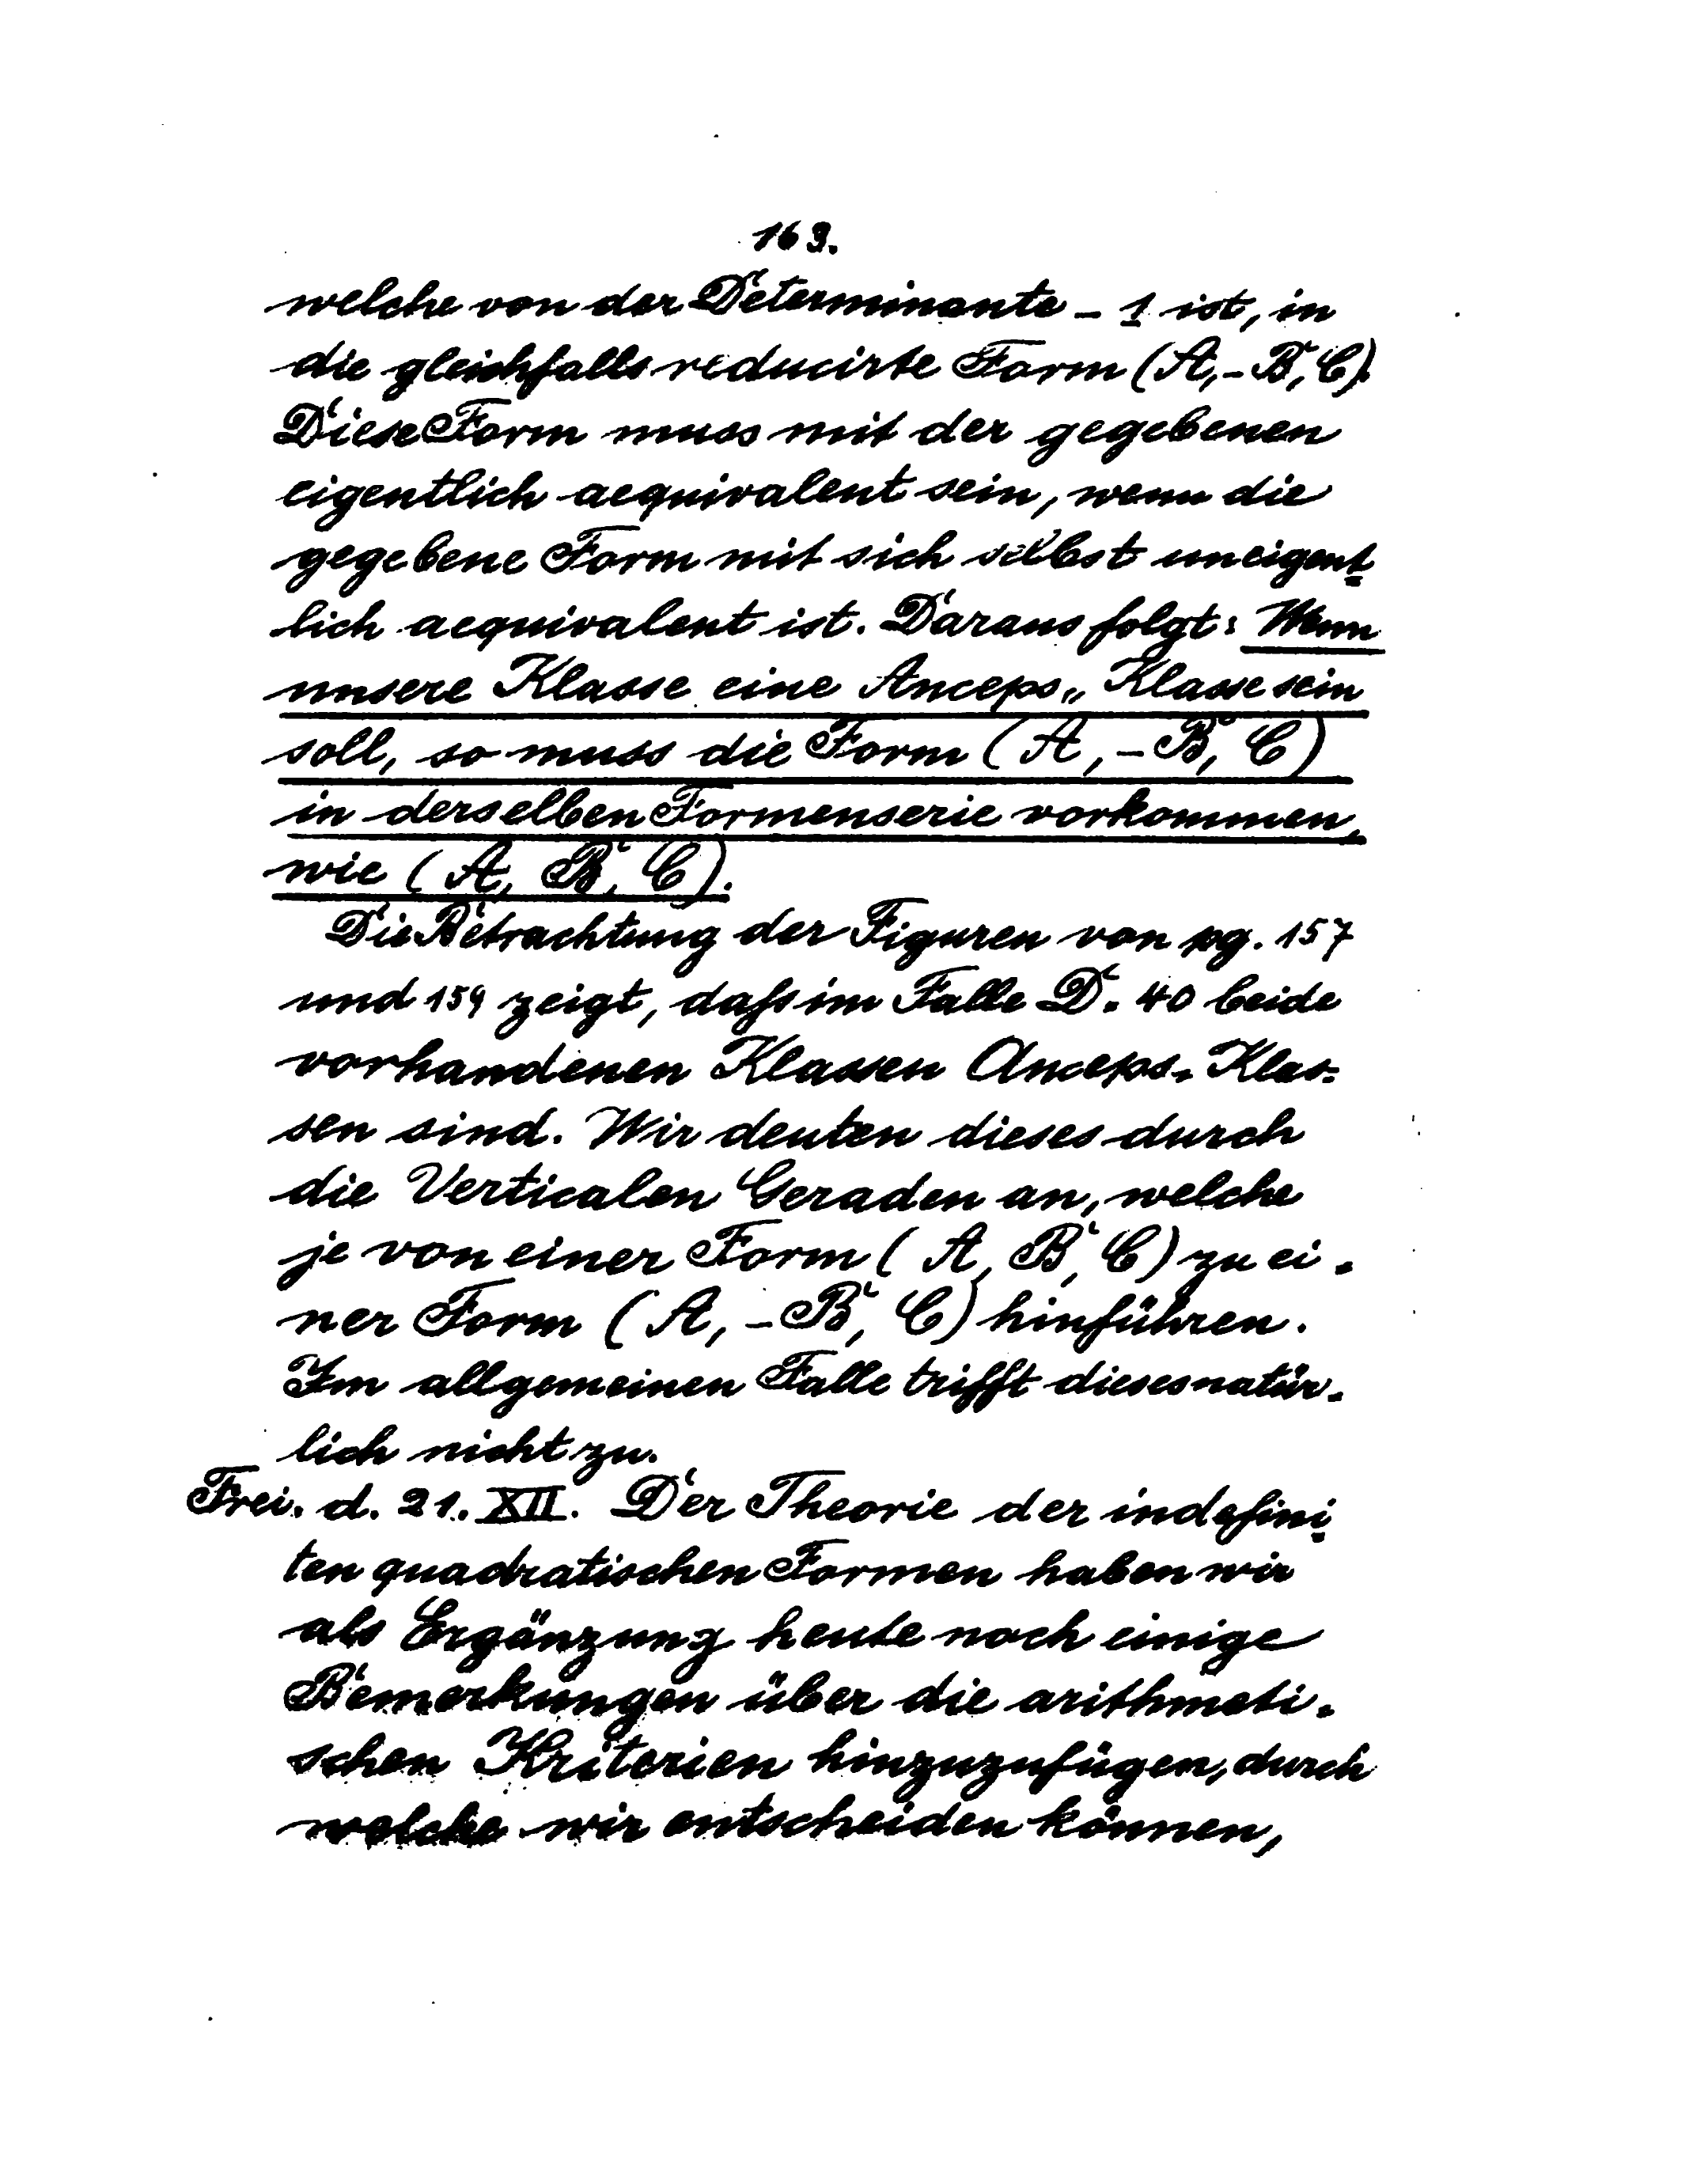 163.
welche von der Determinante - 1 ist, in
die gleichfalls reducirte Form (A, - B, C).
Diese Form muss mit der gegebenen
eigentlich aequivalent sein, wenn die
gegebene Form mit sich selbst uneigent-
lich aequivalent ist. Daraus folgt: Wenn
unsere Klasse eine Anceps-Klasse sein
soll, so muss die Form (A, - B, C)
in derselben Formenserie vorkommen,
wie (A, B, C).
Die Betrachtung der Figuren von pg. 157
und 159 zeigt, daſs im Falle D = 40 beide
vorhandenen Klassen Anceps-Klas-
sen sind. Wir deuten dieses durch
die Verticalen Geraden an, welche
je von einer Form (A, B, C) zu ei-
ner Form (A, - B, C) hinführen.
Im allgemeinen Falle trifft dieses natür-
lich nicht zu.
Frei. d. 21. XII. Der Theorie der indefini-
ten quadratischen Formen haben wir
als Ergänzung heute noch einige
Bemerkungen über die arithmeti-
schen Kriterien hinzuzufügen, durch
welche wir entscheiden können,